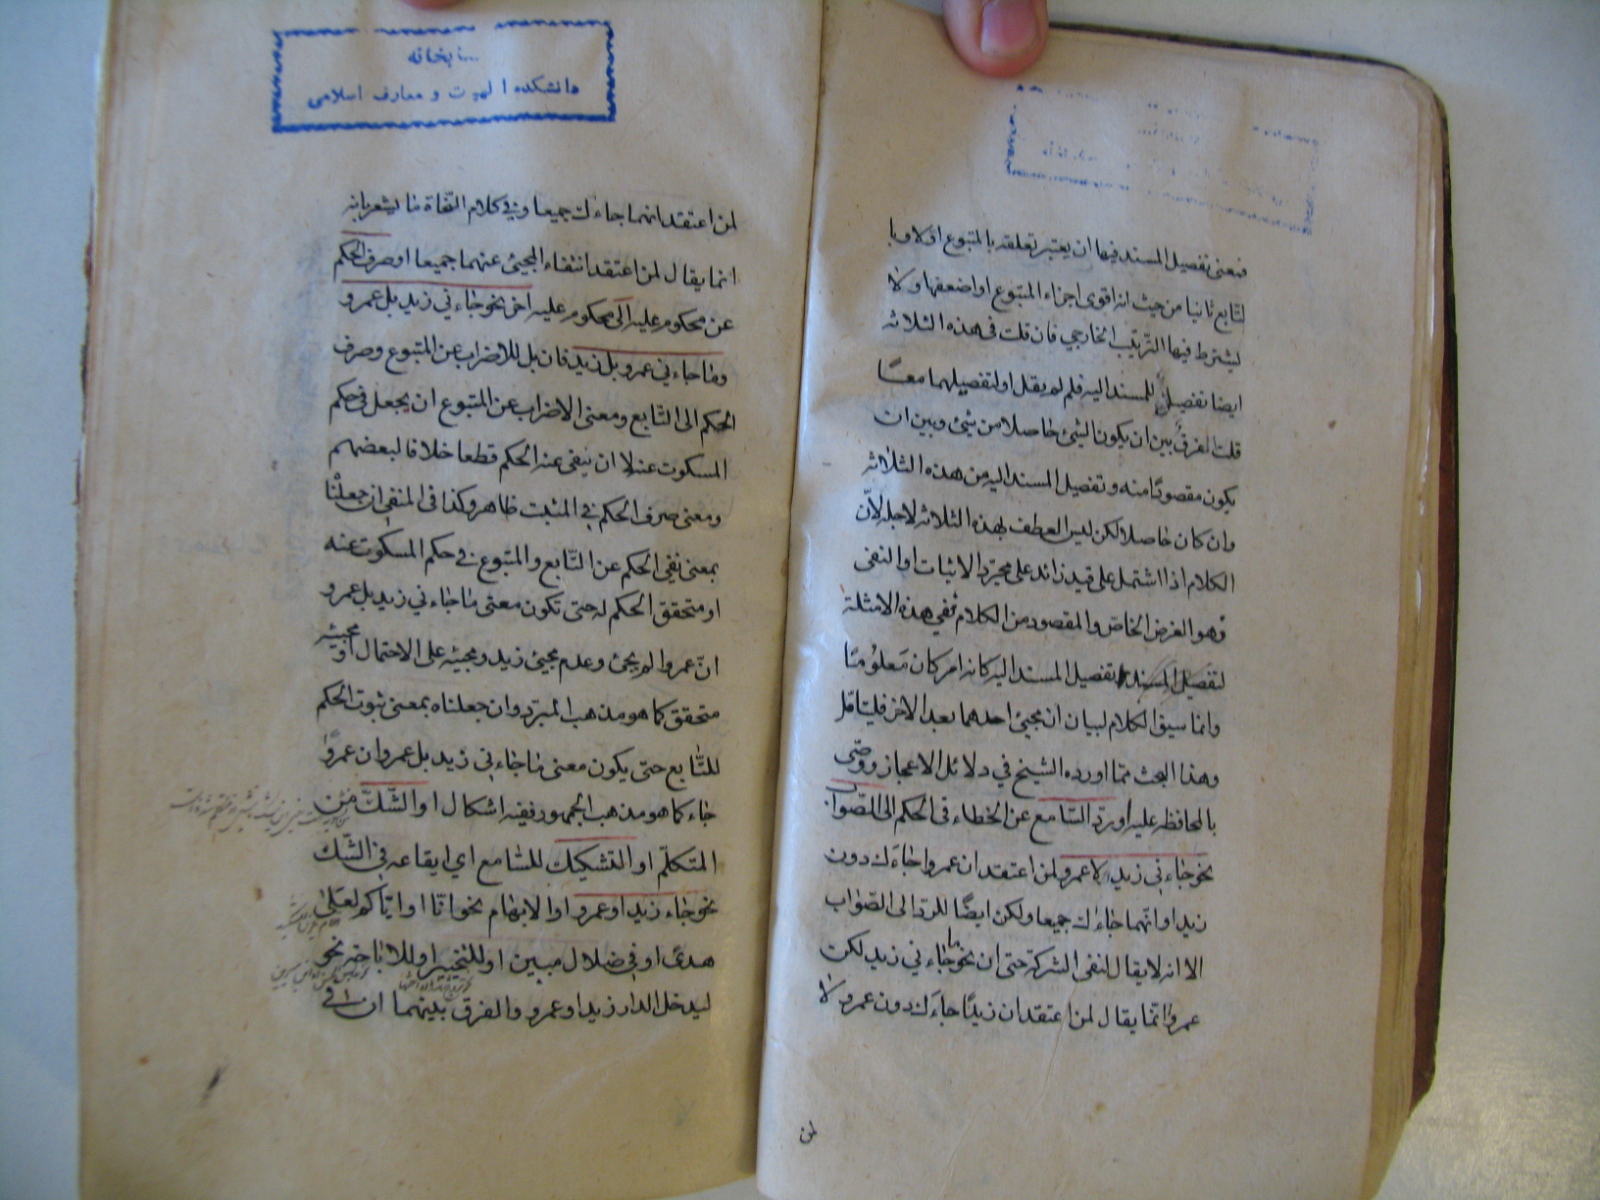 فمعنى تفصيل المسند فيها ان يعتبر تعلقه بالمتبوع اولا وبا
لتابع ثانيا من حيث انه اقوى اجزاء المتبوع او اضعفها ولا
يشترط فيها الترتيب الخارجي فان قلت فى هذه الثلاثه
ايضا تفصيل للمسند اليه فلم لم يقل او لتفصيلهما معًا
قلت الفرق بين ان يكون الشئ حاصلا من شئ وبين ان
يكون مقصودًا منه وتفصيل المسند اليه من هذه الثلاثه
وان كان حاصلا لكن ليس العطف بهذه الثلاثه لاجله لانّ
الكلام اذا اشتمل على قيد زائد على مجرّد الاثبات او النفى
فهو الغرض الخاصّ والمقصود من الكلام ففي هذه الامثلة
لتفصيل المسند تفصيل المسند اليه كانه امر كان معلومًا
وانما سيق الكلام لبيان ان مجئ احدهما بعد الاخر فليتامّل
وهذا البحث ممّا اورده الشيخ في دلائل الاعجاز ووصّى
بالمحافظه عليه او ردّ السّامع عن الخطاء فى الحكم الى الصّواب
نحو جاءنى زيد لا عمرو لمن اعتقد ان عمروا جاءك دون
زيد او انّهما جاءاك جميعا ولكن ايضًا للردّ الى الصّواب
الا انه لا يقال لنفى الشركة حتى ان نحو ما جاءني زيد لكن
عمرو انّما يقال لمن اعتقد ان زيدًا جاءك دون عمرو لا
لمن
كتابخانه
دانشكده الهيات و معارف اسلامى
لمن اعتقد انهما جاءاك جميعا وفي كلام النّحاة ما يشعر بانه
انما يقال لمن اعتقد انتفاء المجئ عنهما جميعا او صرف الحكم
عن محكوم عليه الى محكوم عليه اخر نحو جاءني زيد بل عمرو
وما جاءني عمرو بل زيد فان بل للاضراب عن المتبوع وصرف
الحكم الى التّابع ومعنى الاضراب عن المتبوع ان يجعل في حكم
المسكوت عنه لا ان ينفى عنه الحكم قطعا خلافا لبعضهم
ومعنى صرف الحكم في المثبت ظاهر وكذا فى المنفى ان جعلنا
بمعنى نفى الحكم عن التّابع والمتبوع في حكم المسكوت عنه
او متحقق الحكم له حتى تكون معنى ما جاءني زيد بل عمرو
انّ عمروا لم يجئ وعدم مجئ زيد ومجيئه على الاحتمال او مجيئه
متحقق كما هو مذهب المبرّد وان جعلناه بمعنى ثبوت الحكم
للتّابع حتى يكون معنى ما جاءنى زيد بل عمرو ان عمروًا
جاء كما هو مذهب الجمهور ففيه اشكال او الشّكّ من
المتكلّم او التشكيك للسّامع اي ايقاعه فى الشّك
نحو جاء زيد او عمرو او الابهام نحو انّا او اياكم لعلى
هدى او فى ضلال مبين او للتخيير او للاباحة نحو
ليدخل الدار زيد او عمرو والفرق بينهما ان فى